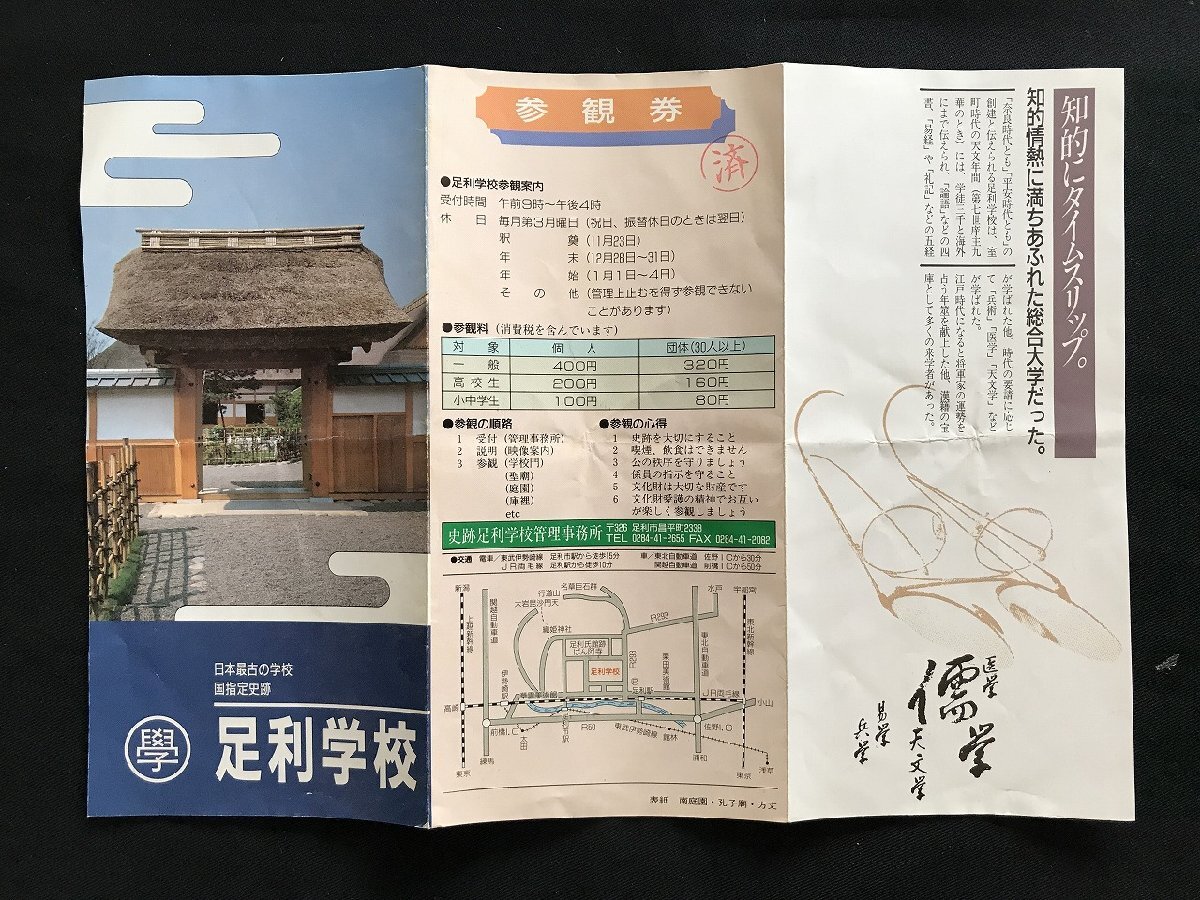 日本最古の学校
国指定史跡
學
足利学校
参観券
済
●足利学校参観案内
受付時間 午前9時〜午後4時
休日 毎月第3月曜日(祝日、振替休日のときは翌日)
釈奠(11月23日)
年末(12月28日〜31日)
年始(1月1日〜4日)
その他(管理上止むを得ず参観できない
ことがあります)
●参観料(消費税を含んでいます)
対象 個人 団体(30人以上)
一般 400円 320円
高校生 200円 160円
小中学生 100円 80円
●参観の順路
1 受付(管理事務所)
2 説明(映像案内)
3 参観(学校門)
(聖廟)
(庭園)
(庫裡)
etc
●参観の心得
1 史跡を大切にすること
2 喫煙、飲食はできません
3 公の秩序を守りましょう
4 係員の指示を守ること
5 文化財は大切な財産です
6 文化財愛護の精神でお互い
が楽しく参観しましょう
史跡足利学校管理事務所
〒326 足利市昌平町2338
TEL 0284-41-2655 FAX 0284-41-2082
●交通 電車/東武伊勢崎線 足利市駅から徒歩15分
JR両毛線 足利駅から徒歩10分
車/東北自動車道 佐野ICから30分
関越自動車道 前橋ICから50分
新潟
上越新幹線
関越自動車道
行道山
大岩毘沙門天
名草巨石群
織姫神社
足利氏館跡
足利学校
R293
水戸
宇都宮
東北自動車道
東北新幹線
栗田美術館
足利駅
JR両毛線
小山
高崎
伊勢崎駅
前橋I.C
太田
R50
東武伊勢崎線
館林
佐野I.C
練馬
東京
浦和
東京
浅草
表紙 南庭園・孔子廟・方丈
知的にタイムスリップ。
知的情熱に満ちあふれた総合大学だった。
「奈良時代とも」「平安時代とも」の
創建と伝えられる足利学校は、室
町時代の天文年間(第七世庠主九
華のとき)には、学徒三千と海外
にまで伝えられ、『論語』などの四
書、『易経』や『礼記』などの五経
が学ばれた他、時代の要請に応じ
て「兵術」「医学」「天文学」など
が学ばれた。
江戸時代になると将軍家の運勢を
占う年筮を献上した他、漢籍の宝
庫として多くの来学者があった。
医学
儒学
天文学
易学
兵学